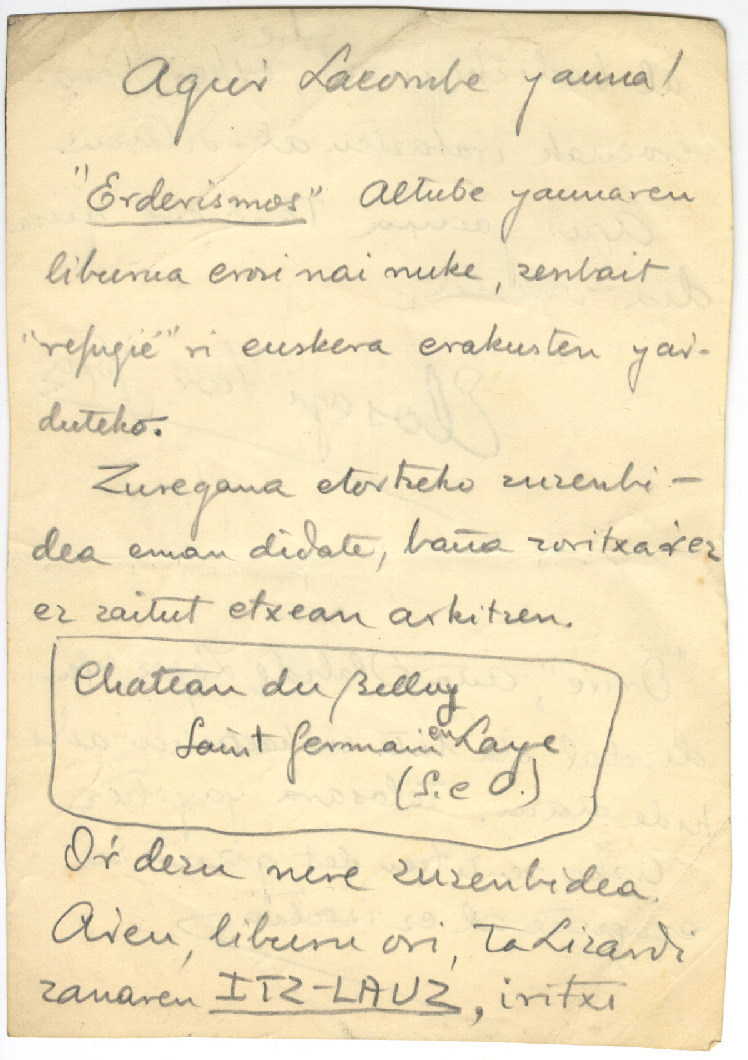 Agur Lacombe yauna!
"Erderismos" Altube yaunaren
liburua erosi nai nuke, zenbait
"refugié"ri euskera erakusten yar-
duteko.
Zuregana etortzeko zuzenbi-
dea eman didate, baña zoritxaŕez
ez zaitut etxean arkitzen.
Chateau du Belloy
Saint Germain en Laye
(S. e O.)
Oŕ dezu nere zuzenbidea.
Aŕen, liburu ori, ta Lizardi
zanaren ITZ-LAUZ, iritxi